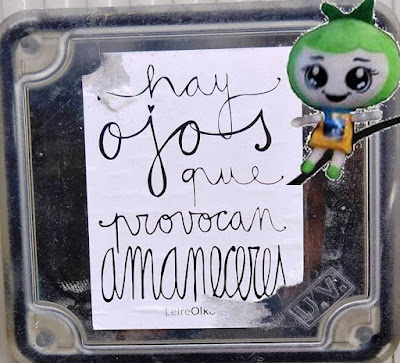 hay
ojos
que
provocan
amaneceres
LeireOlkc